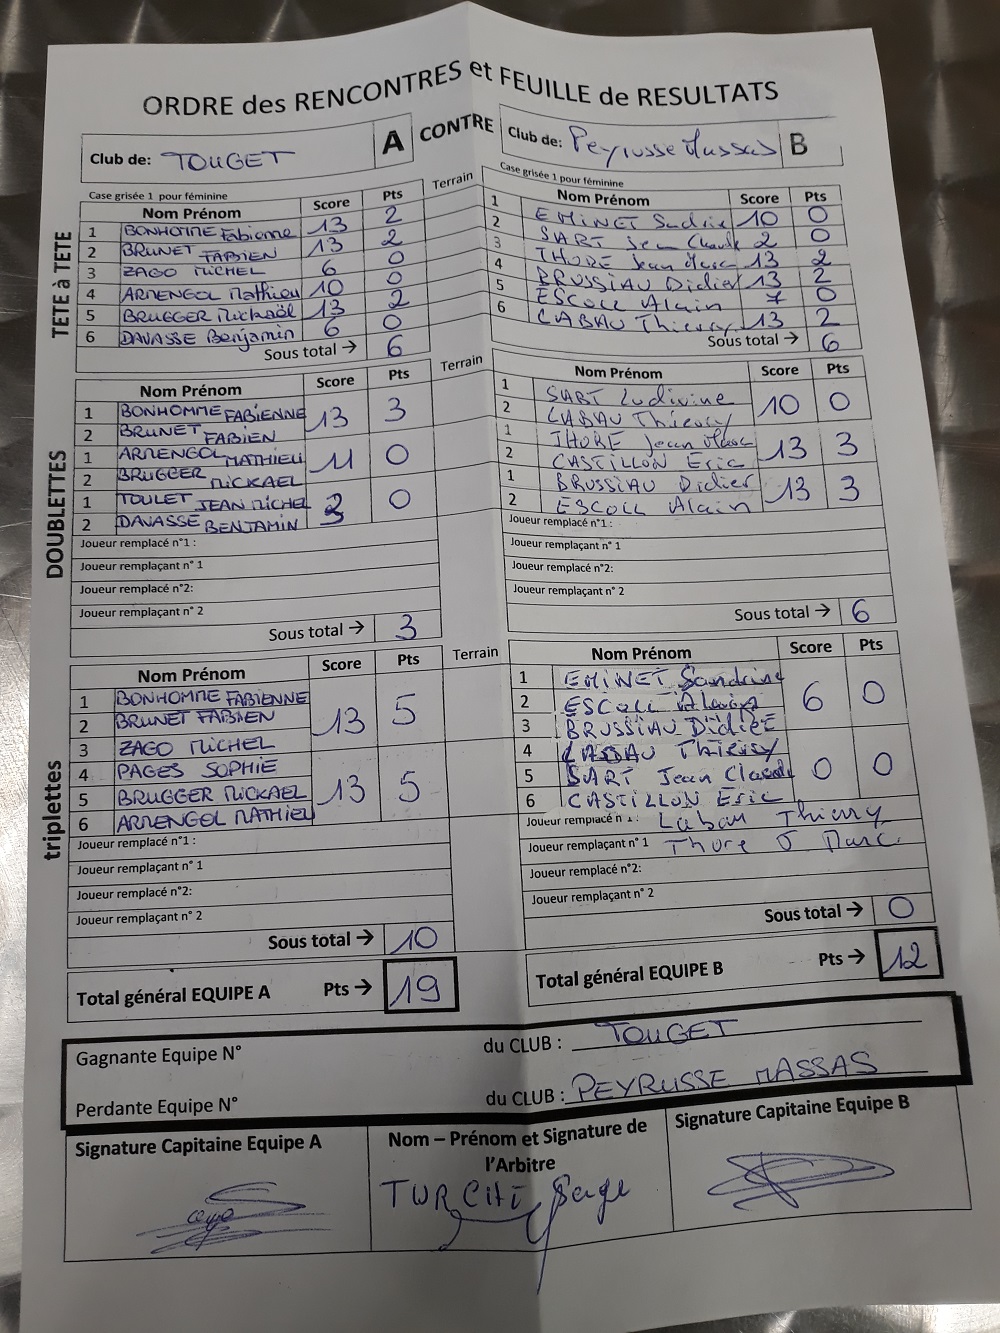 ORDRE des RENCONTRES et FEUILLE de RESULTATS
Club de: TOUGET A CONTRE Club de: Peyrusse Massas B
Case grisée 1 pour féminine Terrain Case grisée 1 pour féminine
TETE à TETE
Nom Prénom Score Pts
1 BONHOMME Fabienne 13 2
2 BRUNET FABIEN 13 2
3 ZAGO MICHEL 6 0
4 ARMENGOL Mathieu 10 0
5 BRUGGER Mickaël 13 2
6 DAVASSE Benjamin 6 0
Sous total → 6
Nom Prénom Score Pts
1 EMINET Sandrine 10 0
2 SART Jean Claude 2 0
3 THORE Jean Marc 13 2
4 BRUSSIAU Didier 13 2
5 ESCOLL Alain 7 0
6 LABAU Thierry 13 2
Sous total → 6
DOUBLETTES
Nom Prénom Score Pts Terrain
1 BONHOMME FABIENNE 13 3
2 BRUNET FABIEN
1 ARMENGOL MATHIEU 11 0
2 BRUGGER MICKAEL
1 TOULET JEAN MICHEL 3 0
2 DAVASSE BENJAMIN
Joueur remplacé n°1 :
Joueur remplaçant n° 1
Joueur remplacé n°2:
Joueur remplaçant n° 2
Sous total → 3
Nom Prénom Score Pts
1 SART Ludivine 10 0
2 LABAU Thierry
1 THORE Jean Marc 13 3
2 CASTILLON Eric
1 BRUSSIAU Didier 13 3
2 ESCOLL Alain
Joueur remplacé n°1 :
Joueur remplaçant n° 1
Joueur remplacé n°2:
Joueur remplaçant n° 2
Sous total → 6
triplettes
Nom Prénom Score Pts Terrain
1 BONHOMME FABIENNE
2 BRUNET FABIEN 13 5
3 ZAGO MICHEL
4 PAGES SOPHIE
5 BRUGGER MICKAEL 13 5
6 ARMENGOL MATHIEU
Joueur remplacé n°1 :
Joueur remplaçant n° 1
Joueur remplacé n°2:
Joueur remplaçant n° 2
Sous total → 10
Nom Prénom Score Pts
1 EMINET Sandrine
2 ESCOLL Alain 6 0
3 BRUSSIAU Didier
4 LABAU Thierry
5 SART Jean Claude 0 0
6 CASTILLON Eric
Joueur remplacé n°1 : Labau Thierry
Joueur remplaçant n° 1 Thore J Marc.
Joueur remplacé n°2:
Joueur remplaçant n° 2
Sous total → 0
Total général EQUIPE A Pts → 19
Total général EQUIPE B Pts → 12
Gagnante Equipe N° du CLUB : TOUGET
Perdante Equipe N° du CLUB : PEYRUSSE MASSAS
Signature Capitaine Equipe A
Nom – Prénom et Signature de
l'Arbitre
Serge
Signature Capitaine Equipe B